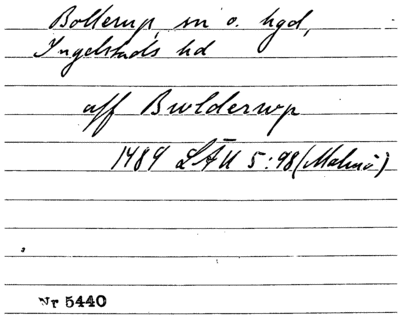 Bollerup, sn o. hgd,
Ingelstads hd
aff Bwlderwp
1489 LÄU 5:98 (Malmö)
Nr 5440